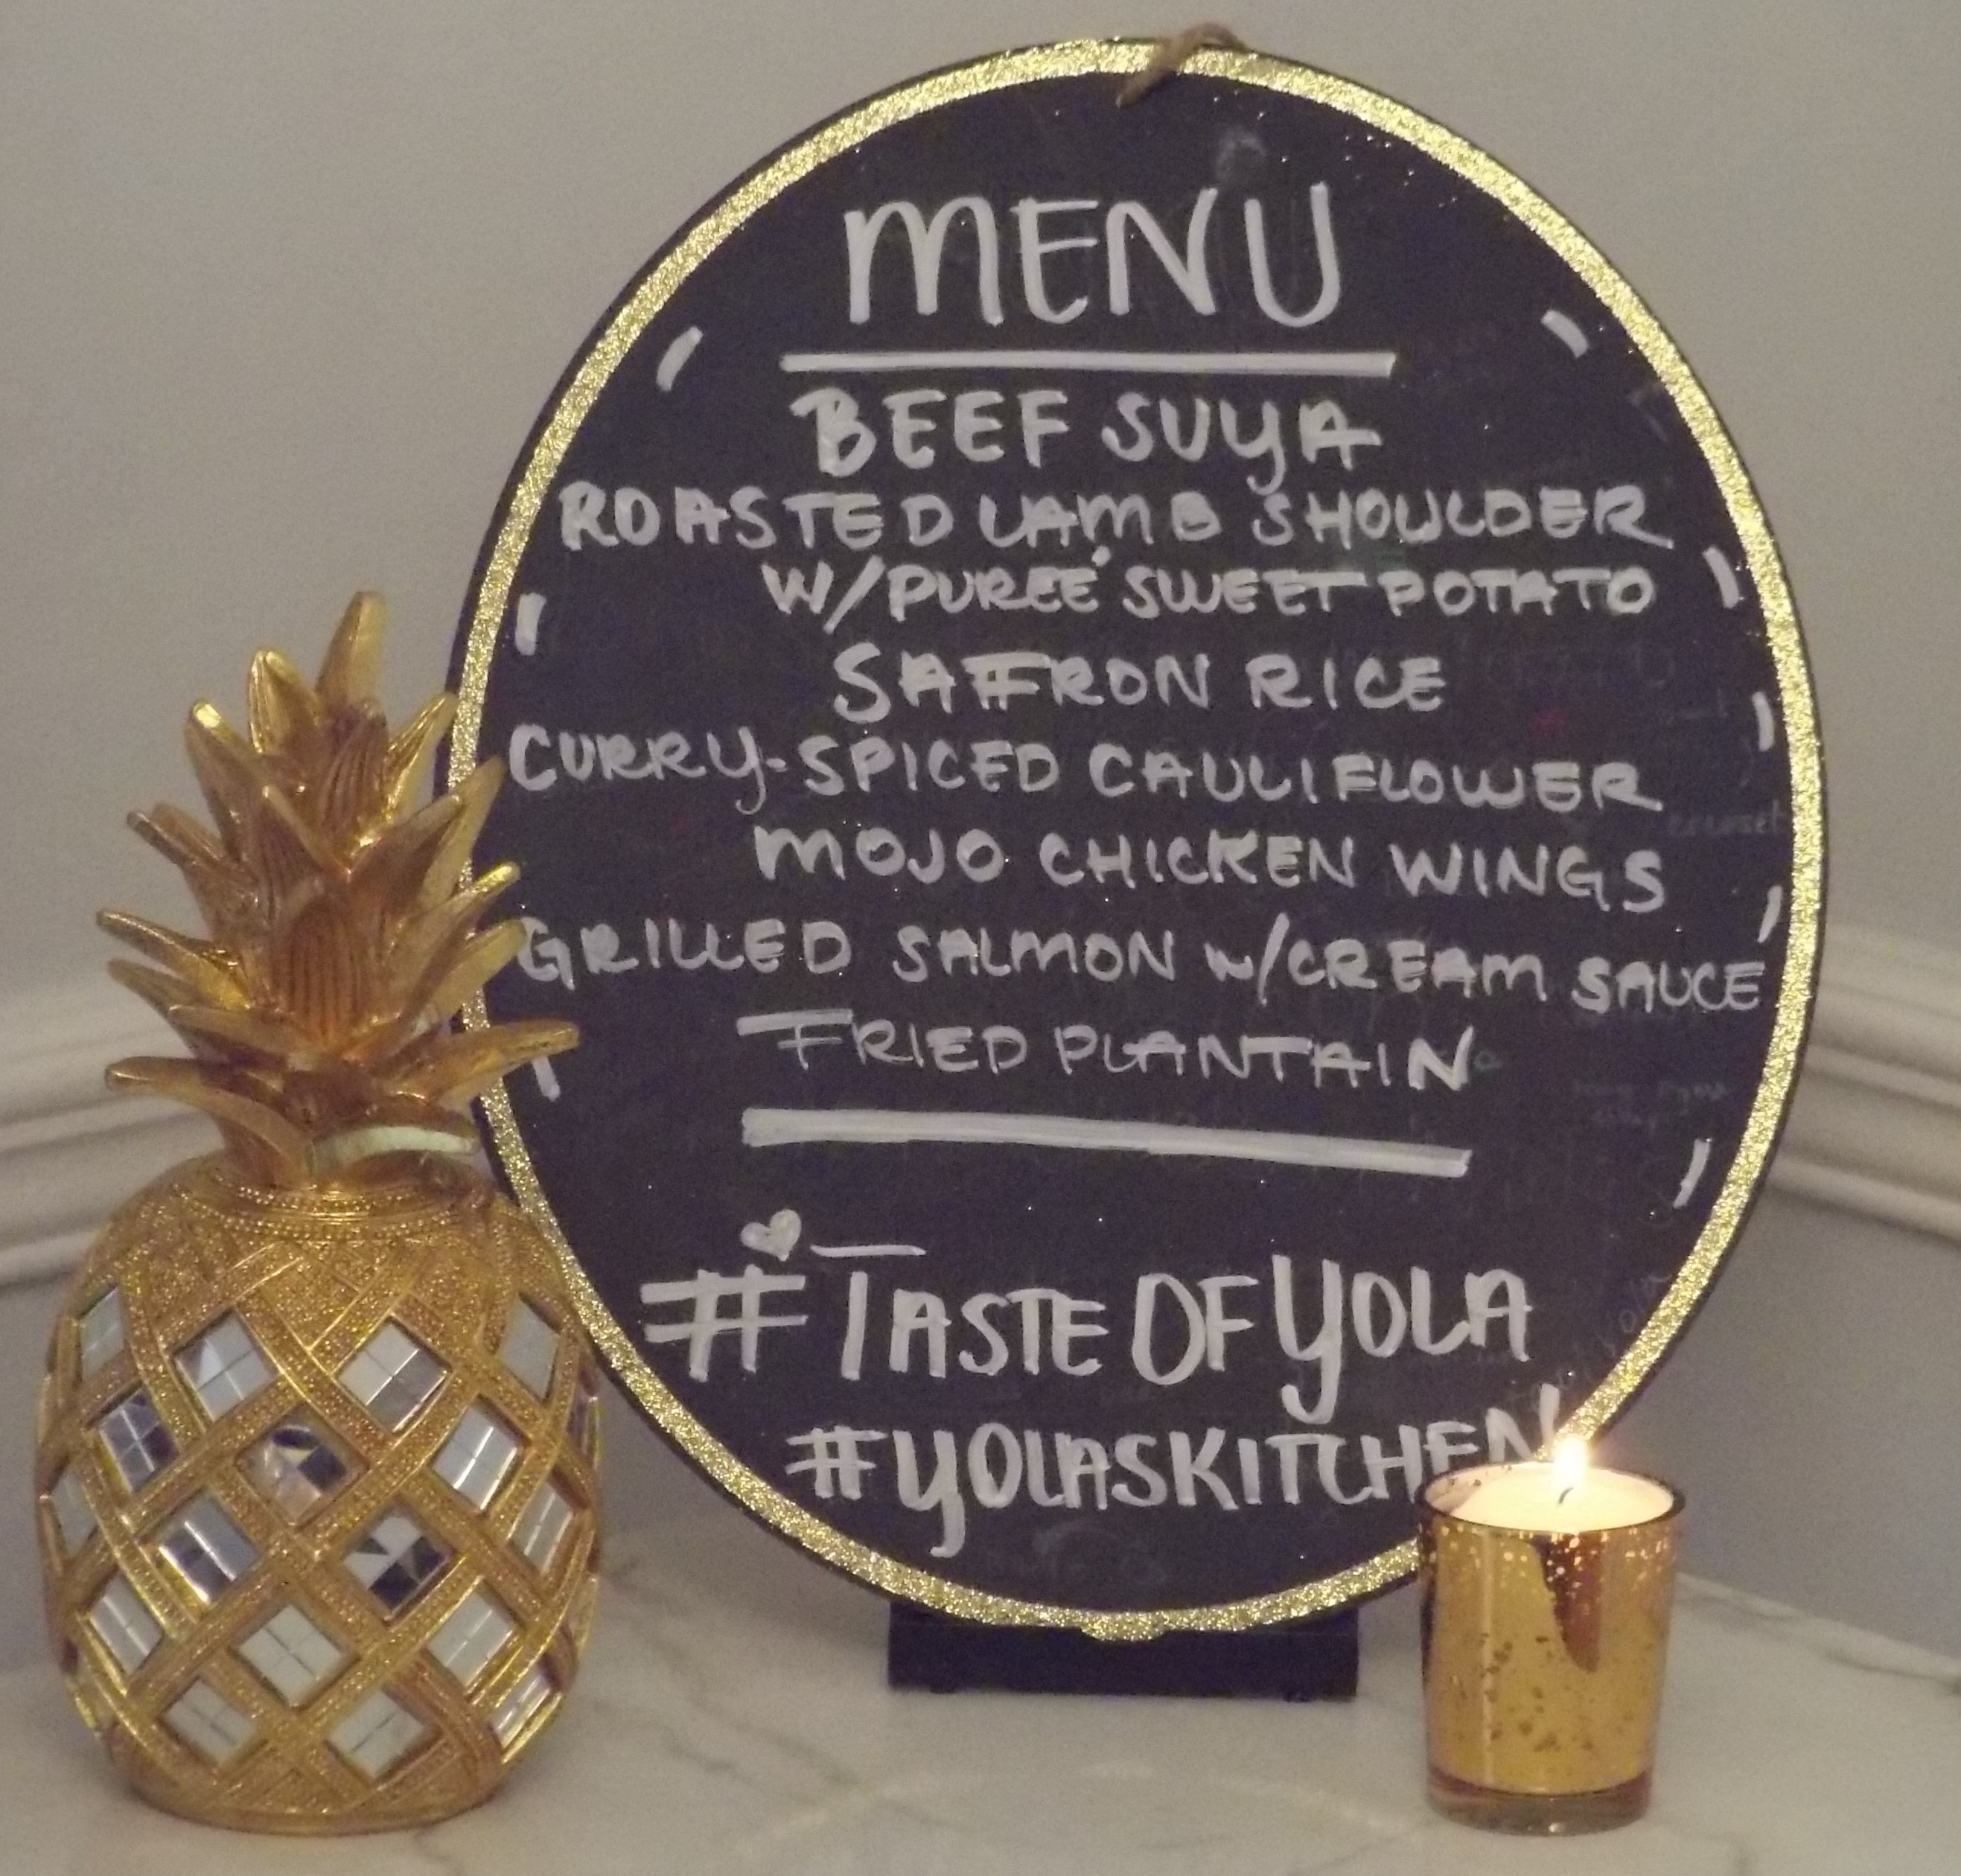 MENU
BEEF SUYA
ROASTED LAMB SHOULDER
W/PUREÉ SWEET POTATO
SAFFRON RICE
CURRY-SPICED CAULIFLOWER
MOJO CHICKEN WINGS
GRILLED SALMON W/CREAM SAUCE
FRIED PLANTAIN
#TASTEOFYOLA
#YOLASKITCHEN